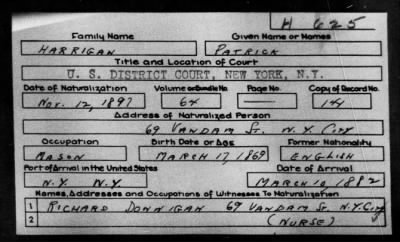 H 625
Family Name Given Name or Names
HARRIGAN PATRICK
Title and Location of Court
U. S. DISTRICT COURT, NEW YORK, N.Y.
Date of Naturalization Volume or Bundle No. Page No. Copy of Record No.
Nov. 12, 1897 64 — 144
Address of Naturalized Person
69 VANDAM St. N.Y. City
Occupation Birth Date or Age Former Nationality
MASON MARCH 17, 1869 ENGLISH
Port of Arrival in the United States Date of Arrival
N.Y. N.Y. MARCH 10, 1882
Names, Addresses and Occupations of Witnesses To Naturalization
1 RICHARD DONNIGAN 69 VANDAM St N.Y. City
2 (NURSE)